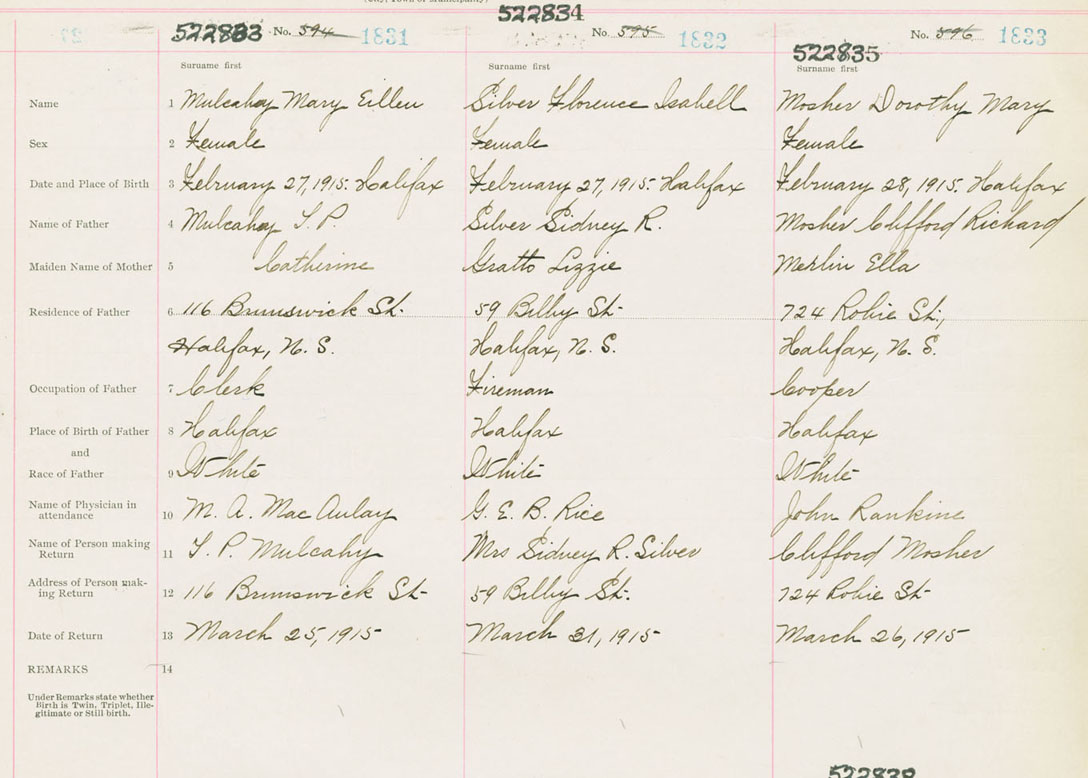 522834
522833 No. 594 1831 No. 595 1832 No. 596 1833
522835
Surname first Surname first Surname first
Name 1 Mulcahy Mary Eilleu Silver Florence Isabell Mosher Dorothy Mary
Sex 2 Female Female Female
Date and Place of Birth 3 February 27, 1915. Halifax February 27, 1915. Halifax February 28, 1915. Halifax
Name of Father 4 Mulcahy T. P. Silver Sidney R. Mosher Clifford Richard
Maiden Name of Mother 5 Catherine Gratto Lizzie Merlin Ella
Residence of Father 6 116 Brunswick St. 59 Bilby St 724 Robie St.,
Halifax, N. S. Halifax, N. S. Halifax, N. S.
Occupation of Father 7 Clerk Fireman Cooper
Place of Birth of Father 8 Halifax Halifax Halifax
and
Race of Father 9 White White White
Name of Physician in
attendance 10 M. A. MacAulay G. E. B. Rice John Rankine
Name of Person making
Return 11 T. P. Mulcahy Mrs Sidney R. Silver Clifford Mosher
Address of Person mak-
ing Return 12 116 Brunswick St 59 Bilby St. 724 Robie St
Date of Return 13 March 25, 1915 March 31, 1915 March 26, 1915
REMARKS 14
Under Remarks state whether
Birth is Twin, Triplet, Ille-
gitimate or Still-birth.